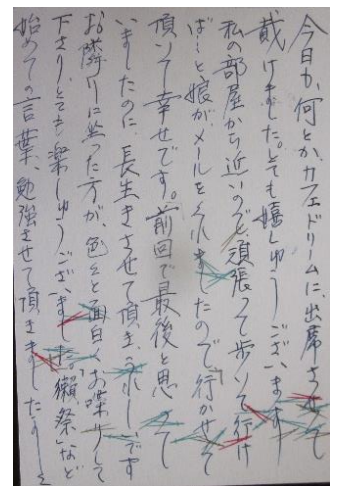 今日も、何とか、カフェドリームに、出席させて
戴けました。とても嬉しゅうございます
私の部屋から近いので頑張って歩いて行け
ば…と娘が、メールをくれましたので行かせて
頂いて幸せです。前回で最後と思って
いましたのに、長生きさせて頂きうれしいです
お隣りに坐った方が、色々と面白くお喋りして
下さり、とても楽しゅうございました「獺祭」など
始めての言葉、勉強させて頂きました